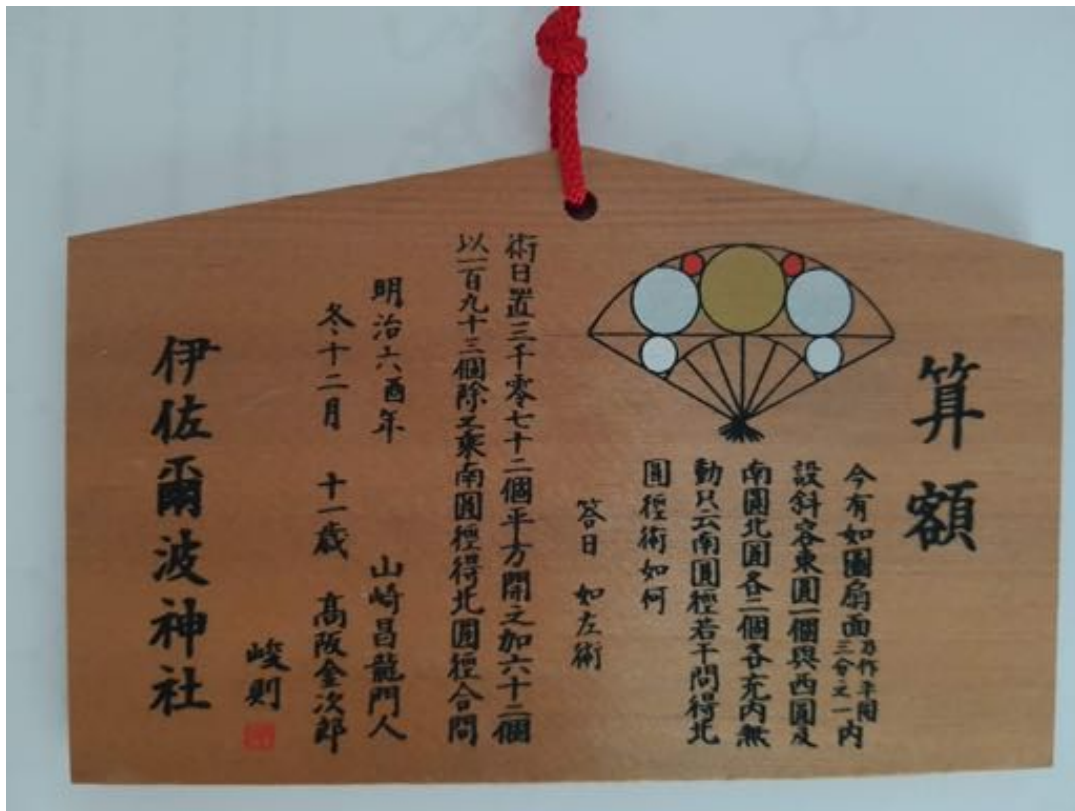 算額
今有如圖扇面乃作平圓三分之一内
設斜容東圓一個與西圓及
南圓北圓各二個各充内無
動只云南圓徑若干問得北
圓徑術如何
答曰 如左術
術曰置三千零七十二個平方開之加六十二個
以一百九十三個除之乘南圓徑得北圓徑合問
明治六酉年 山崎昌龍門人
冬十二月 十一歳 高阪金次郎
峻則
伊佐爾波神社